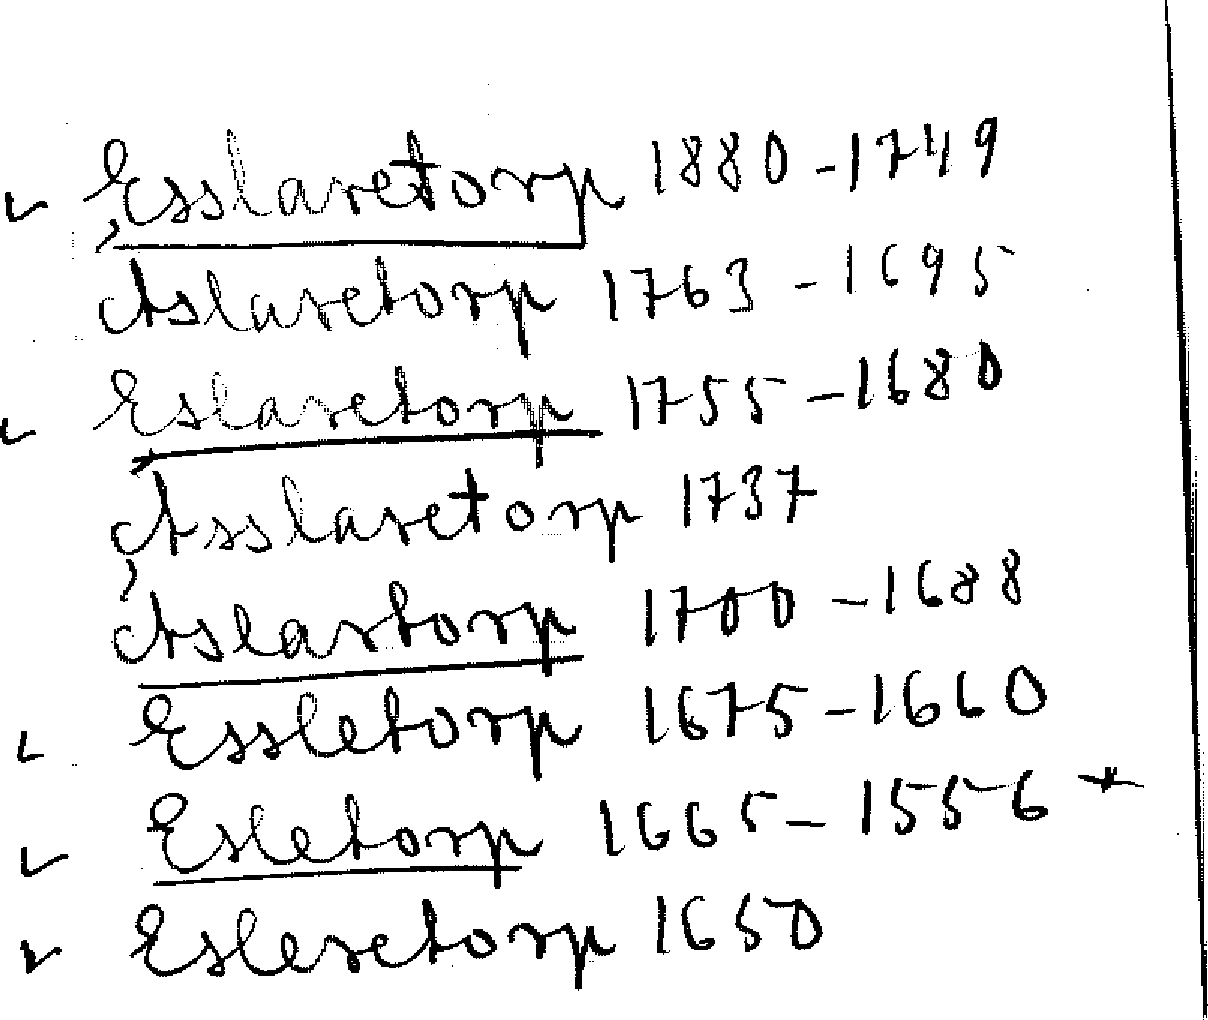 Esslaretorp 1880-1749
Aslaretorp 1763-1695
Eslaretorp 1755-1680
Asslaretorp 1737
Aslartorp 1700-1688
Essletorp 1675-1660
Esletorp 1665-1556 *
Esleretorp 1650